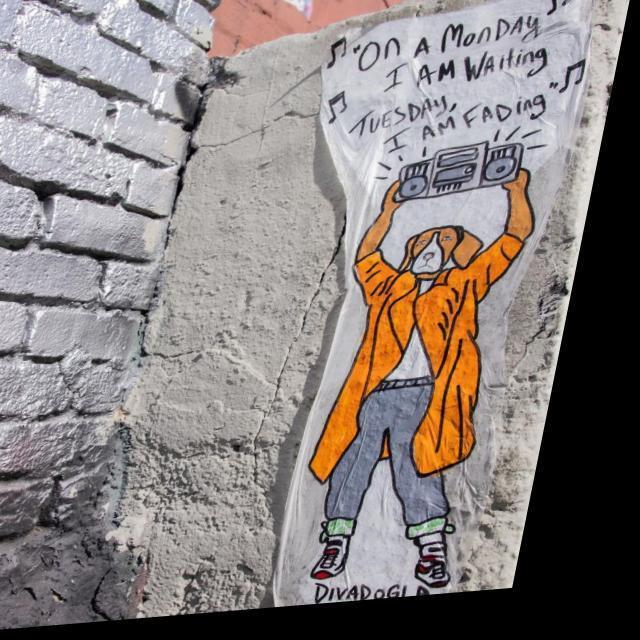 "On A MONDAY
I AM WAiting
TUESDAY,
I AM FADing"